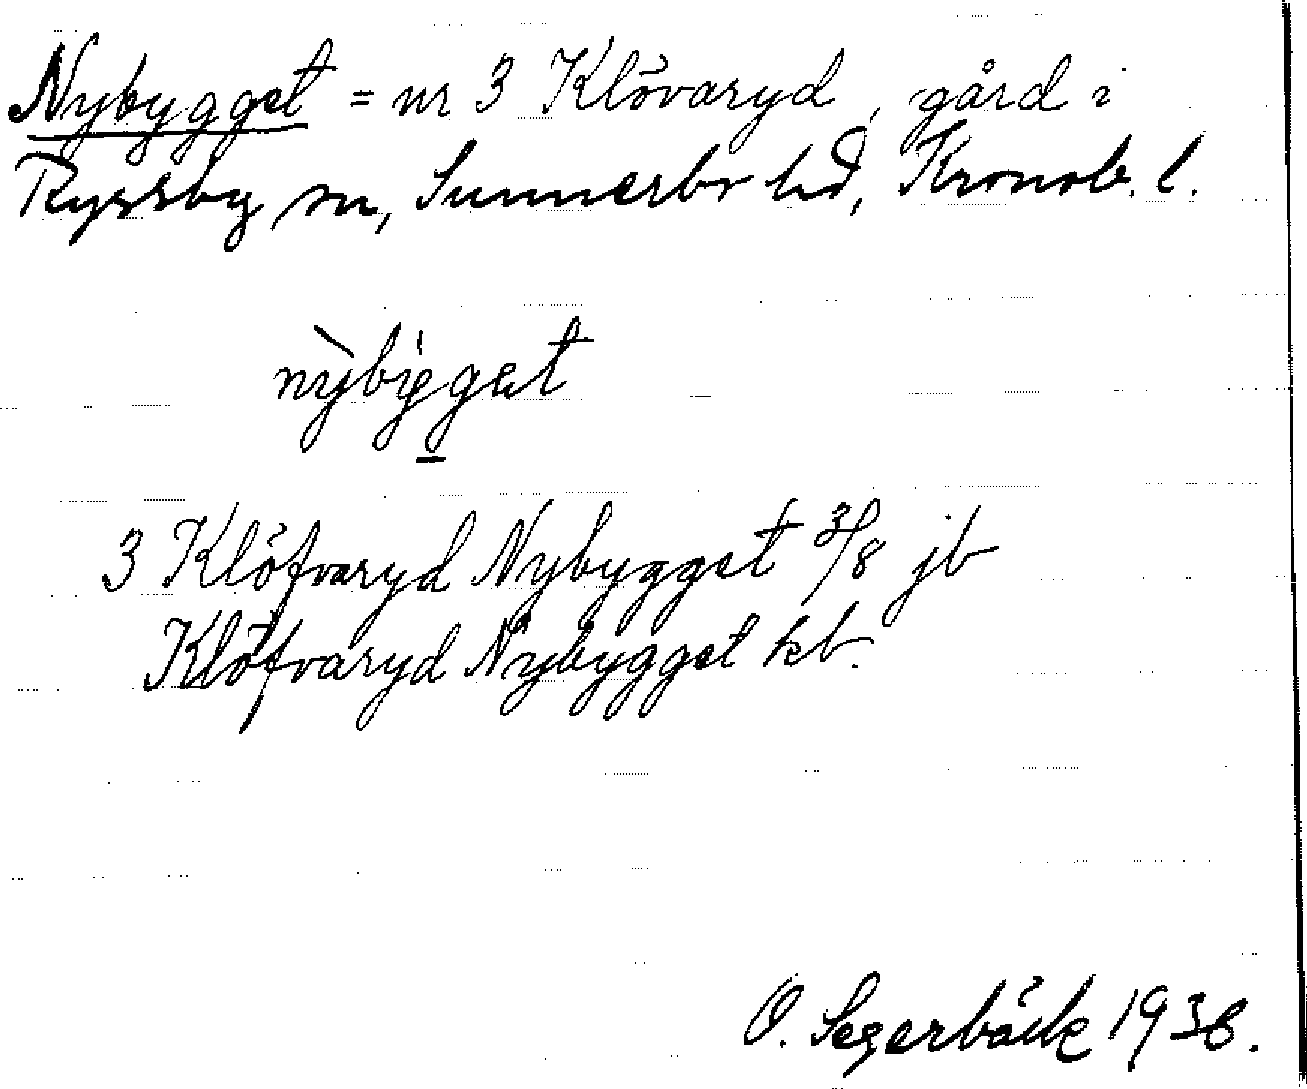 Nybygget = nr 3 Klövaryd, gård i
Ryssby sn, Sunnerbo hd, Kronob. l.
nỳbyget
3 Klöfvaryd Nybygget 3/8 jb
Klöfvaryd Nybygget kb.
O. Segerbäck 1938.